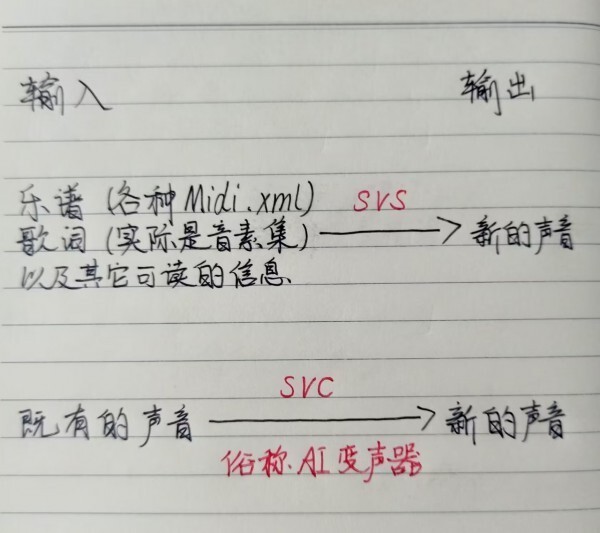 输入 输出
乐谱 (各种Midi.xml) SVS
歌词 (实际是音素集) 新的声音
以及其它可读的信息
SVC
既有的声音 新的声音
俗称AI变声器